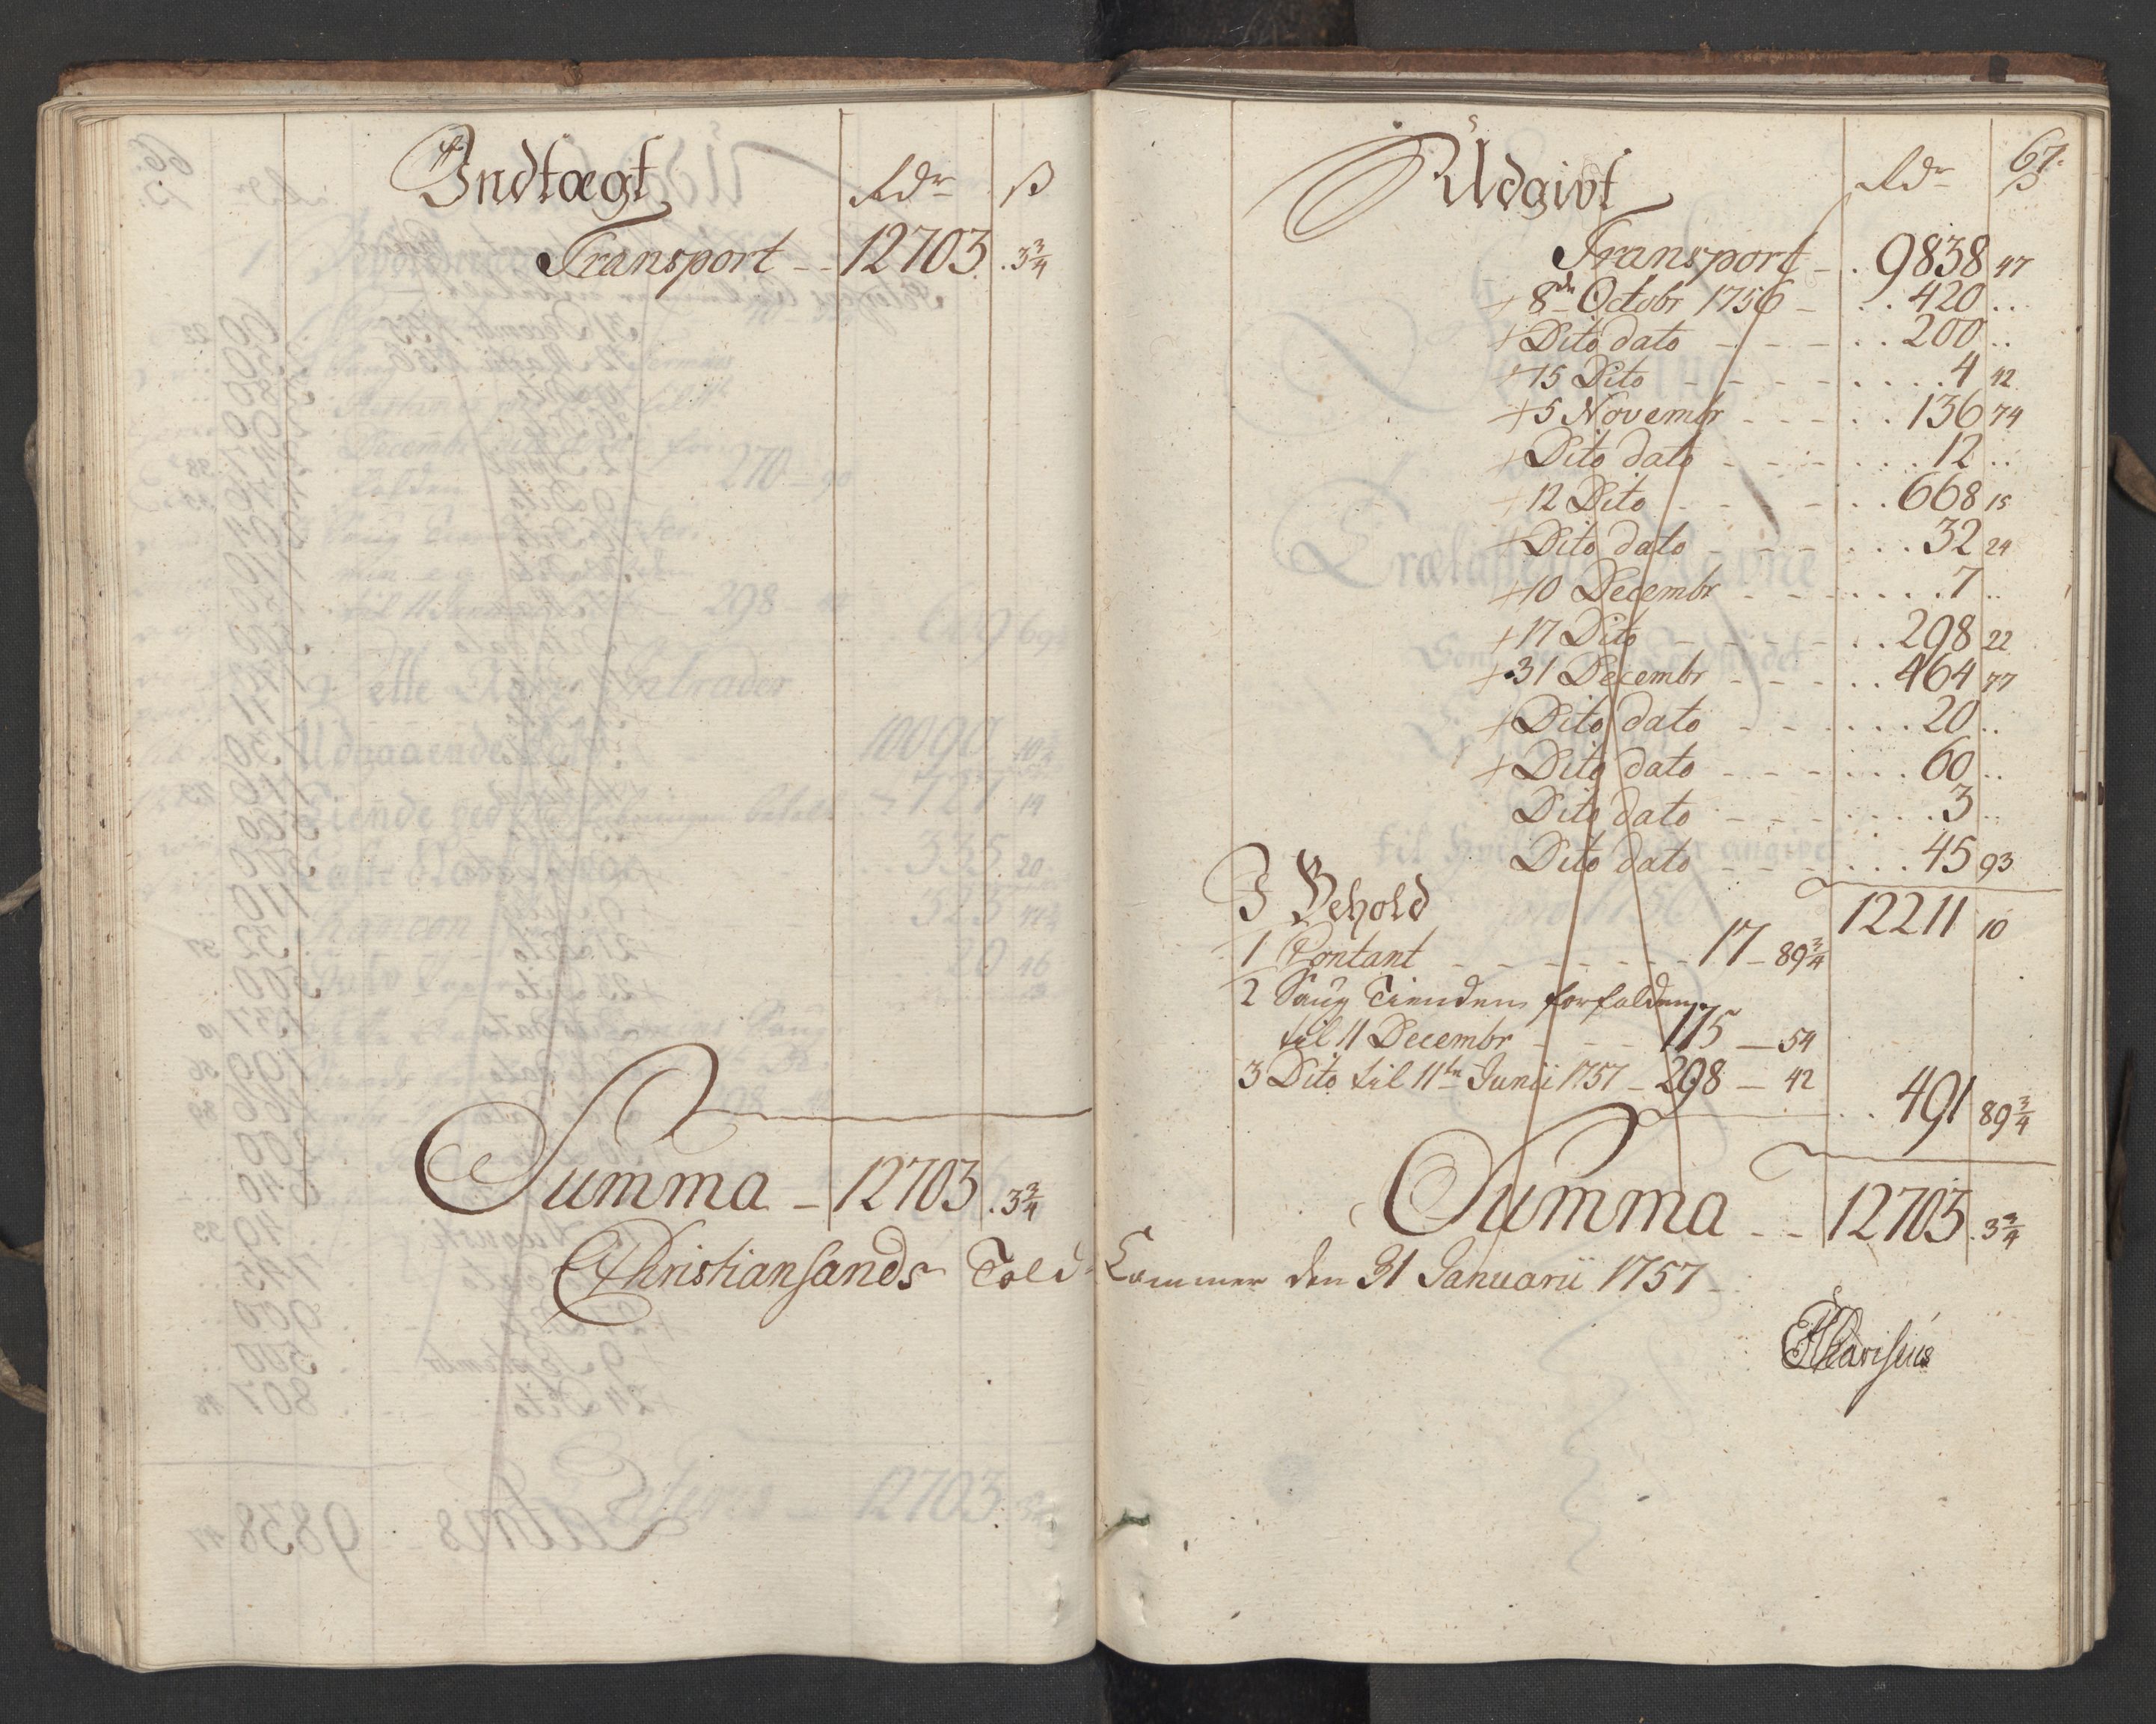 Indtægt Rdr ß
Transport - - 12703 . 3 3/4
Summa - 12703 . 3 3/4
67.
Udgivt Rdr ß
Transport - . 9838 47
+ 8de Octobr 1756 - . . 420 . .
+ Dito dato - - - - . . 200 . .
+ 15 Dito - - - - - . . . . 4 42
+ 5 Novembr - - - - . . 136 74
+ Dito dato - - - - . . . 12 . .
+ 12 Dito - - - - . . 668 15
+ Dito dato - - - - . . . 32 24
+ 10 Decembr - - - . . . . 7 . .
+ 17 Dito - - - - - . . 298 22
+ 31 Decembr - - - - . . 464 77
+ Dito dato - - - - . . . 20 . .
+ Dito dato - - - - . . . 60 . .
Dito dato - - - - . . . . 3 . .
Dito dato - - - - . . . 45 93
I Behold 12211 10
1 Contant - - - - - - - 17 - 89 3/4
2 Saug Tienden forfalden
til 11 Decembr - - - 175 - 54
3 Dito til 11te Junii 1757 - 298 - 42
. . 491 89 3/4
Summa - - 12703 . 3 3/4
Christiansands Told Cammer den 31 Januarii 1757 -